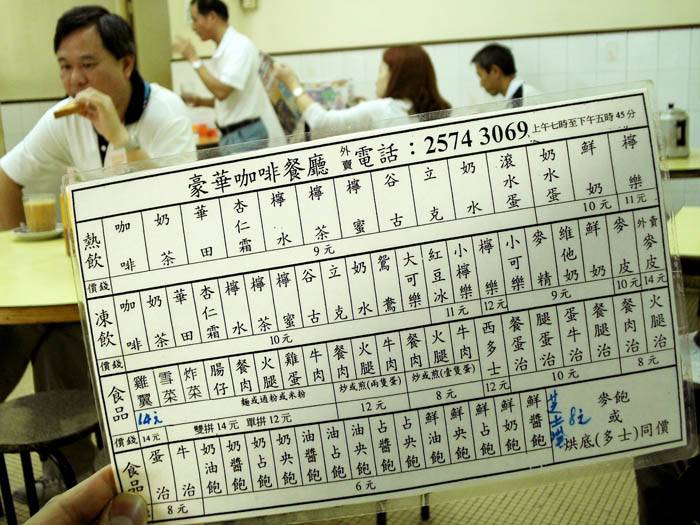 豪華咖啡餐廳 外賣電話：2574 3069 上午七時至下午五時45分
熱飲 咖啡 奶茶 華田 杏仁霜 檸水 檸茶 檸蜜 谷古 立克 奶水 滾水蛋 奶水蛋 鮮奶 檸樂
價錢 9元 10元 11元
凍飲 咖啡 奶茶 華田 杏仁霜 檸水 檸茶 檸蜜 谷古 立克 奶水 鴛鴦 大可樂 紅豆冰 小檸樂 檸樂 小可樂 麥精 維他奶 鮮奶 麥皮 外賣麥皮
價錢 10元 11元 12元 9元 10元 14元
食品 雞翼 雪菜 炸菜 腸仔 餐肉 火腿 雞蛋 牛肉 餐肉 火腿 牛肉 餐肉 火腿 牛肉 西多士 餐蛋治 腿蛋治 蛋牛治 餐肉治 火腿治
14元 麵或通粉或米粉 炒或煎(兩隻蛋) 炒或煎(壹隻蛋)
價錢 14元 雙拼14元 單拼12元 12元 8元 12元 10元 8元
食品 蛋治 牛治 奶油飽 奶醬飽 奶占飽 奶央飽 油醬飽 油占飽 油央飽 占醬飽 占央飽 鮮油飽 鮮央飽 鮮占飽 鮮奶飽 鮮醬飽 芝士 8元 麥飽或烘底(多士)同價
8元 6元